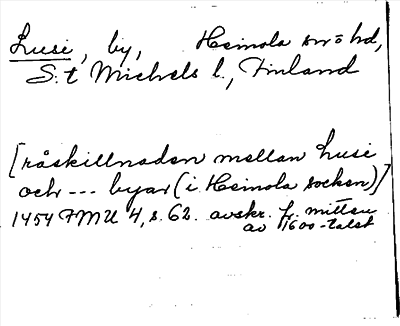 Lusi, by, Heinola sn o hd,
S:t Michels l., Finland
[råskillnaden mellan Lusi
och --- byar (i Heinola socken)]
1454 FMU 4, s. 62. avskr. fr. mitten
av 1600-talet